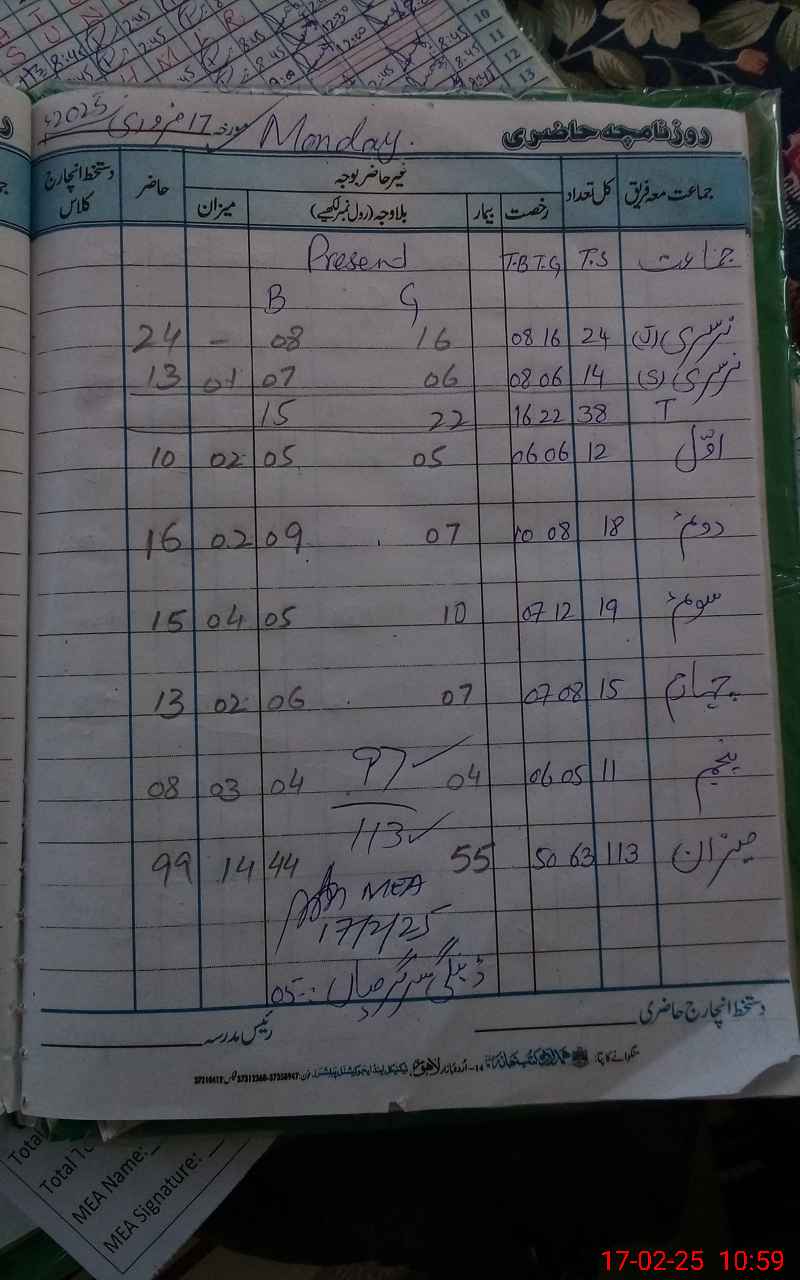 روزنامچہ حاضری Monday. مورخہ 17 فروری 2025ء
جماعت معہ فریق کل تعداد غیر حاضر بوجہ حاضر دستخط انچارج کلاس
رخصت بیمار بلاوجہ (رول نمبر لکھیے) میزان
جماعت T.S T.B T.G Present
B G
نرسری (آ) 24 08 16 16 08 – 24
نرسری (s) 14 08 06 06 07 01 13
T 38 16 22 22 15
اوّل 12 06 06 05 05 02 10
دوم 18 10 08 07 09 02 16
سوم 19 07 12 10 05 04 15
چہارم 15 07 08 07 06 02 13
پنجم 11 06 05 04 97 04 03 08
113
میزان 113 50 63 55 44 14 99
MEA
17/2/25
ڈیلی سرگرمیاں :- 05
دستخط انچارج حاضری
رئیس مدرسہ
منگوانے کا پتہ: ہمالہ کتب خانہ 14-اردو بازار لاہور
Total
Total
MEA Name:
MEA Signature:
10
11
12
13
17-02-25 10:59